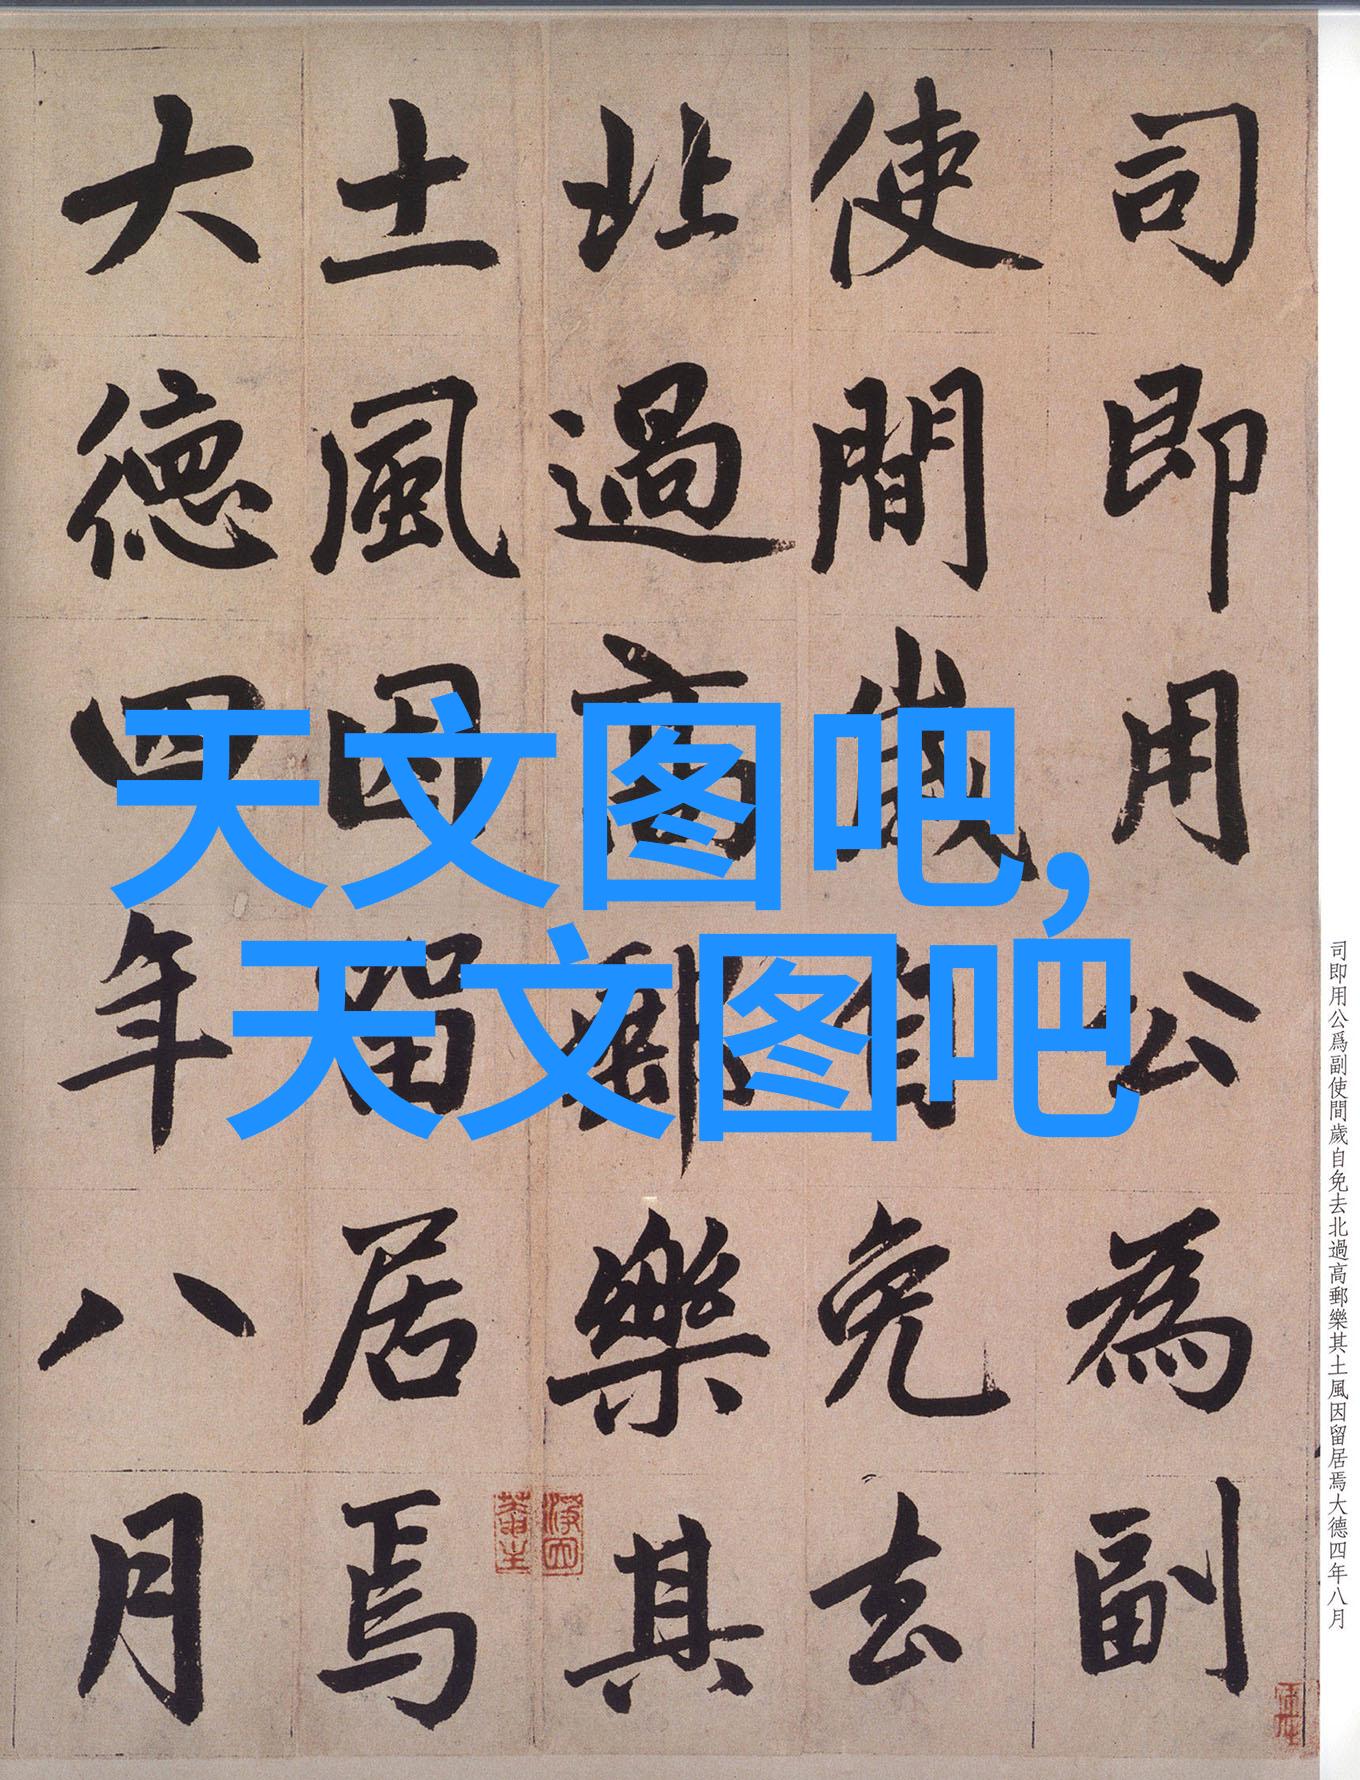 司即用公為副
使間歲自免去
北過高郵樂其
土風因留居焉
大德四年八月
天文图吧,
天文图吧
司即用公爲副使間歲自免去北過高郵樂其土風因留居焉大德四年八月